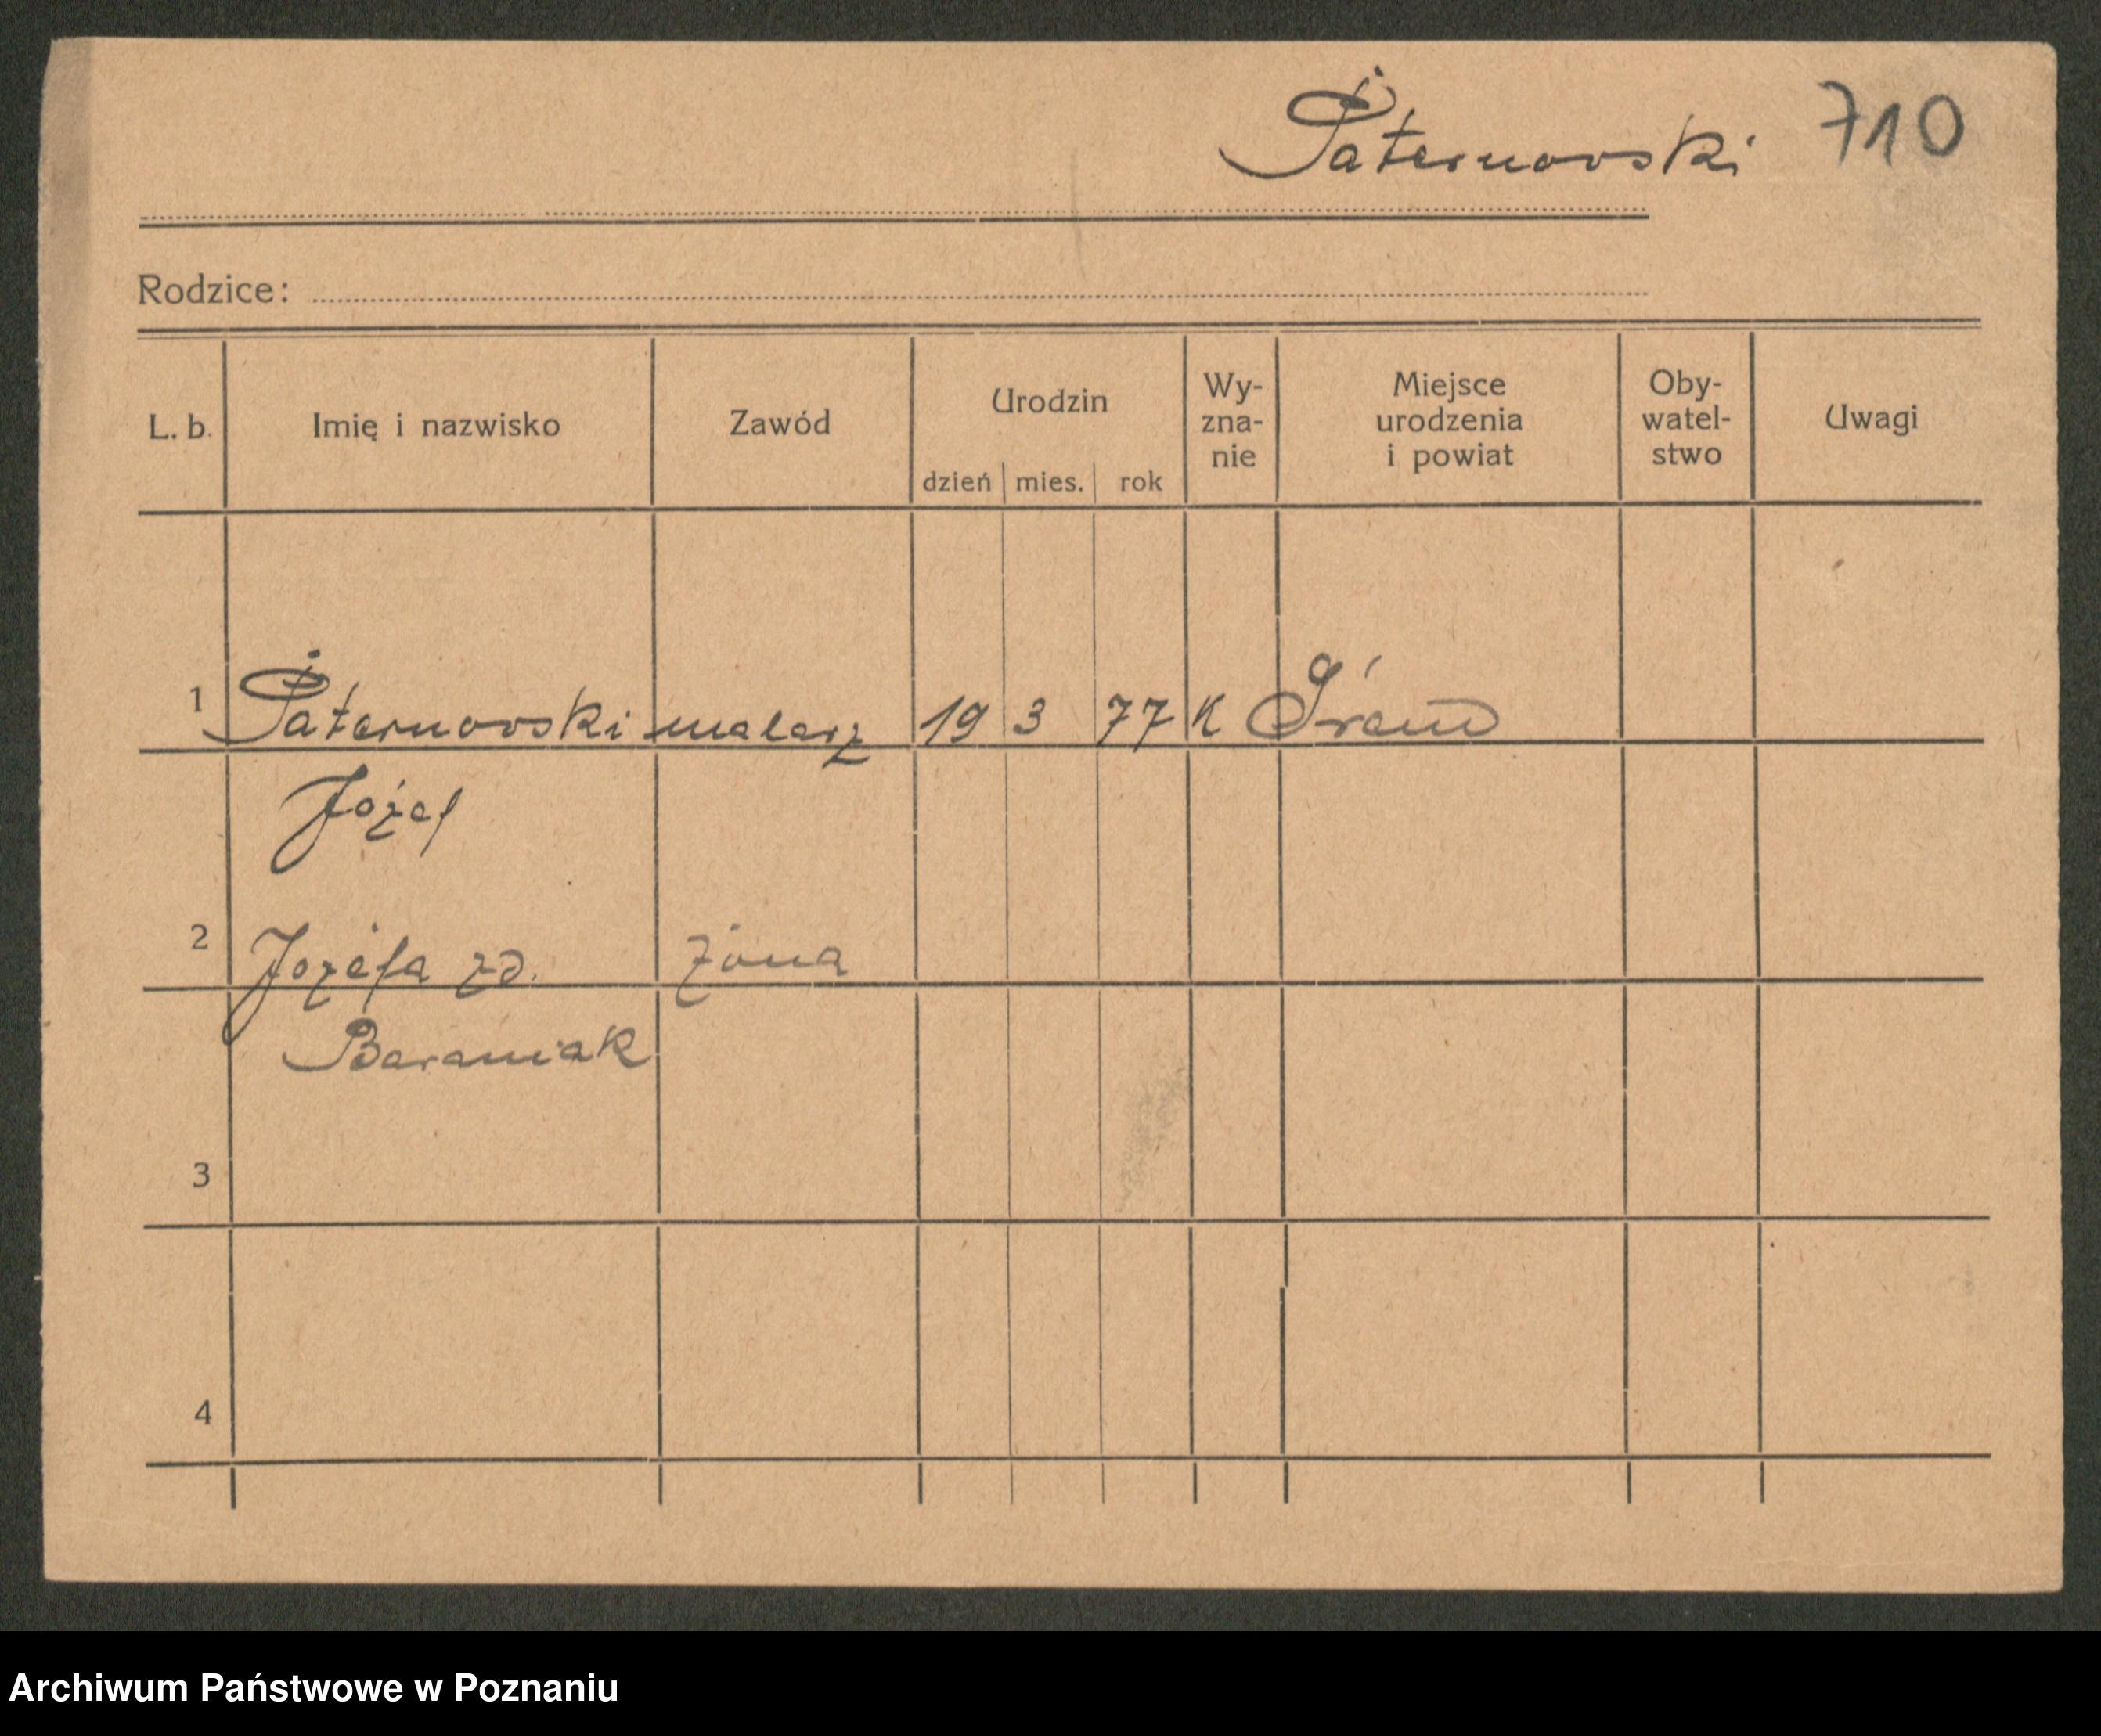 Paternowski 710
Rodzice:
L. b. Imię i nazwisko Zawód Urodzin dzień mies. rok Wy-zna-nie Miejsce urodzenia i powiat Oby-watel-stwo Uwagi
1 Paternowski malarz 19 3 77 K Śrem
Józef
2 Józefa zd. żona
Baraniak
3
4
Archiwum Państwowe w Poznaniu